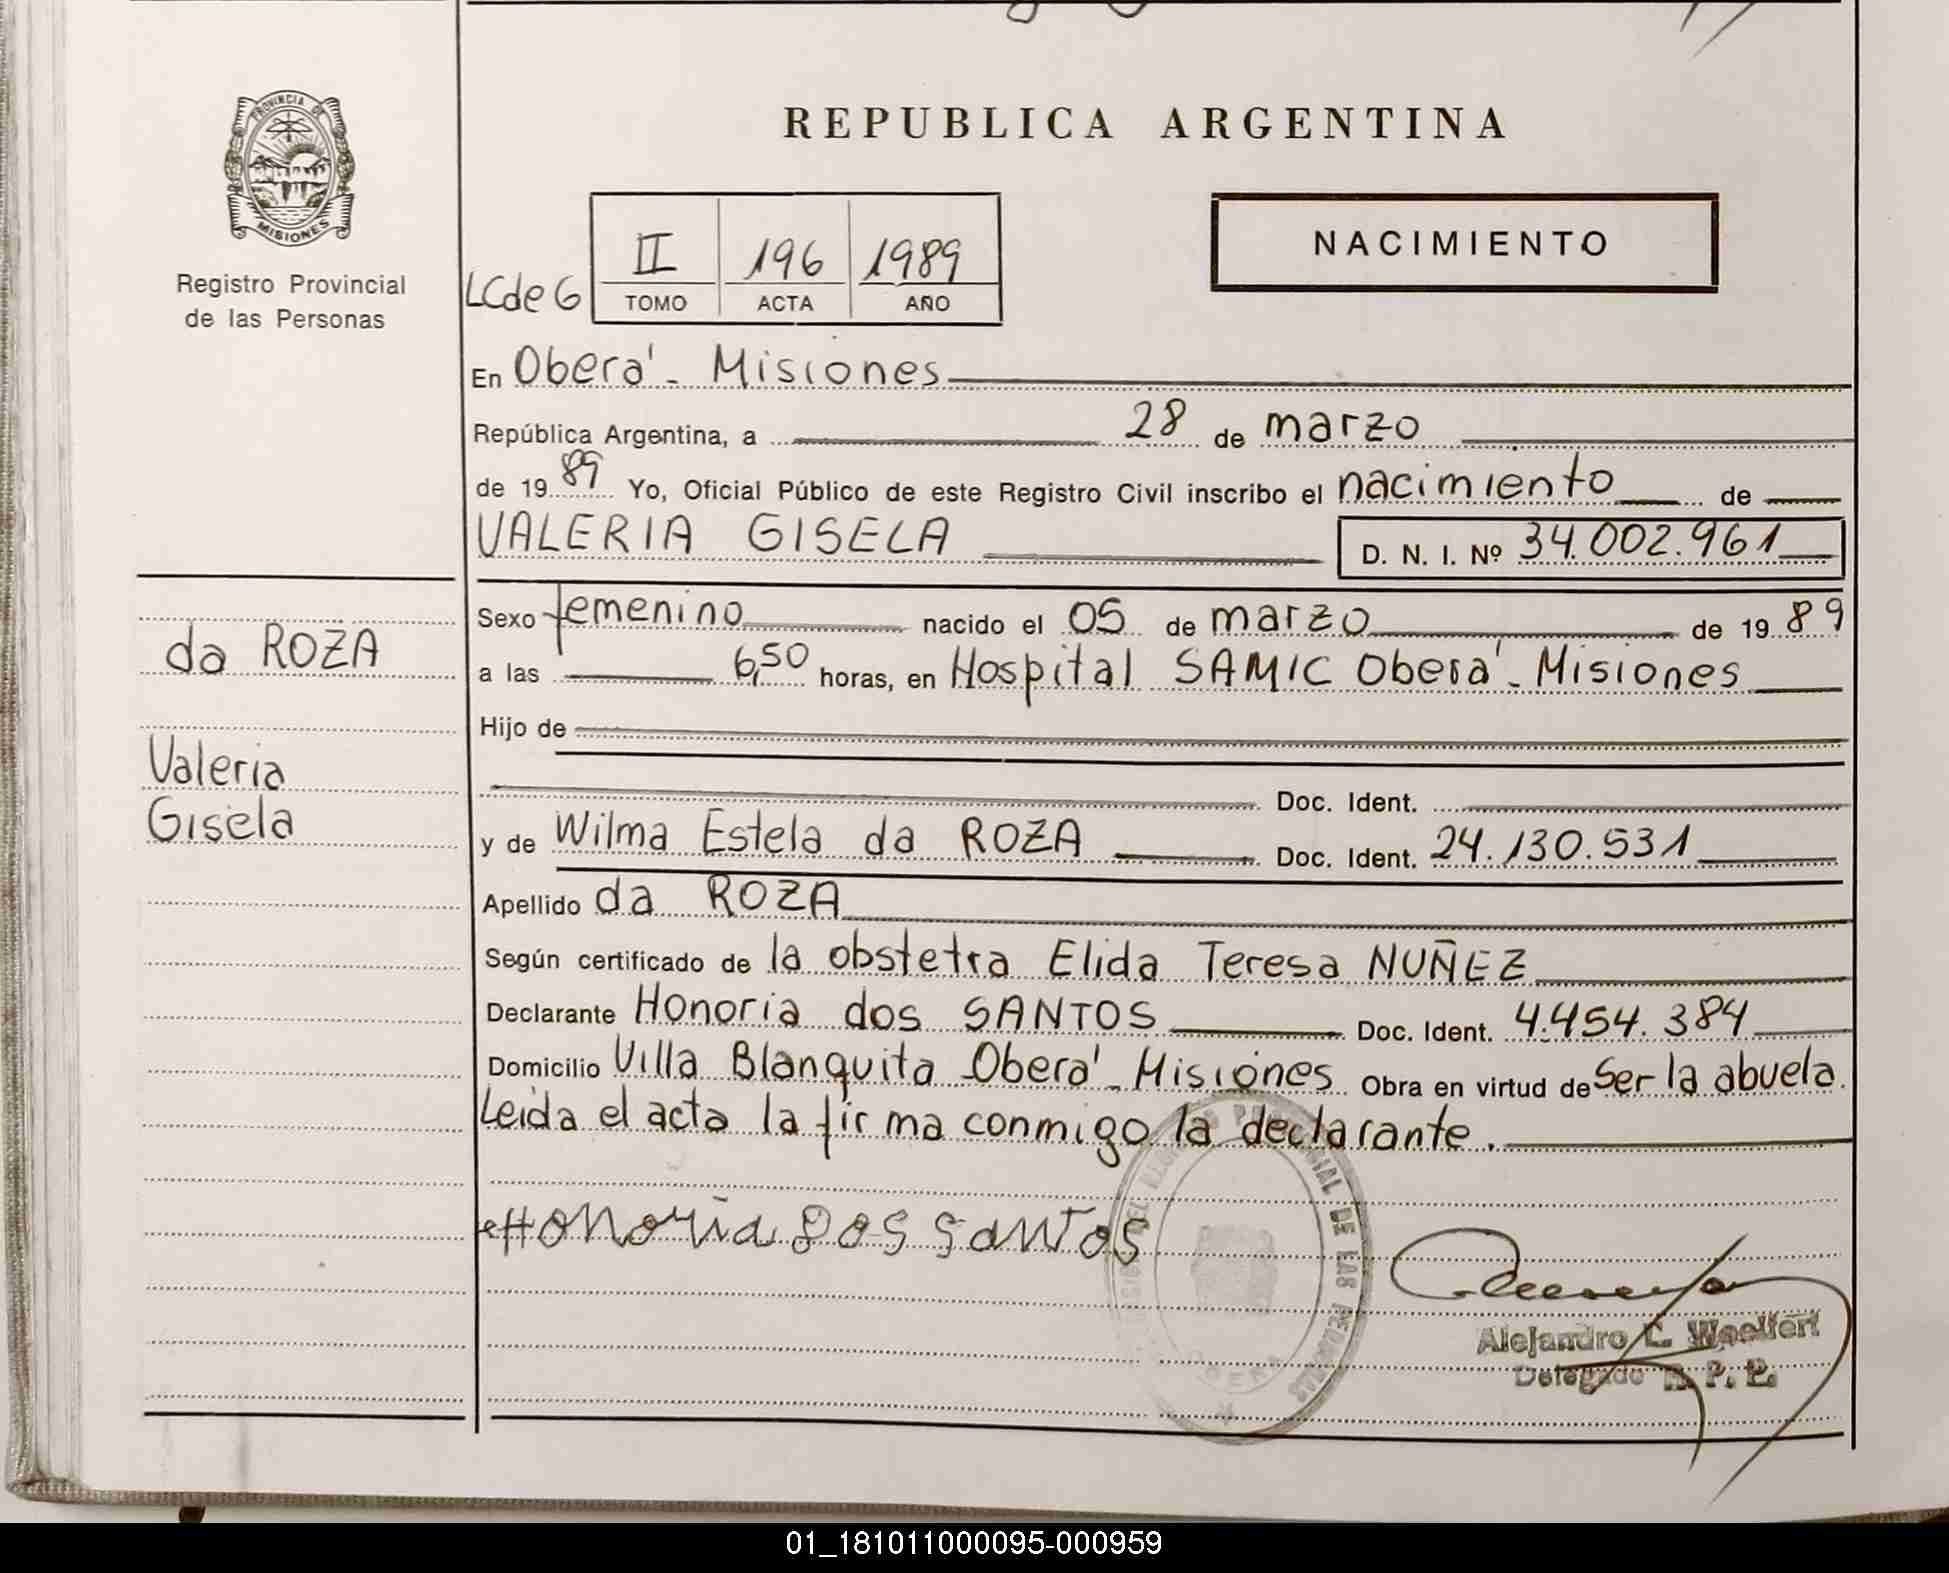 PROVINCIA DE
MISIONES
Registro Provincial
de las Personas
da ROZA
Valeria
Gisela
REPUBLICA ARGENTINA
NACIMIENTO
LCde G
II 196 1989
TOMO ACTA AÑO
En Oberá - Misiones
República Argentina, a 28 de marzo
de 1989 Yo, Oficial Público de este Registro Civil inscribo el nacimiento de
VALERIA GISELA D. N. I. Nº 34.002.961
Sexo femenino nacido el 05 de marzo de 1989
a las 6,50 horas, en Hospital SAMIC Oberá - Misiones
Hijo de
Doc. Ident.
y de Wilma Estela da ROZA Doc. Ident. 24.130.531
Apellido da ROZA
Según certificado de la obstetra Elida Teresa NUÑEZ
Declarante Honoria dos SANTOS Doc. Ident. 4.454.384
Domicilio Villa Blanquita Oberá - Misiones Obra en virtud de Ser la abuela.
Leida el acta la firma conmigo la declarante.
Honoria Dos Santos
DE LAS PERSONAS
Alejandro C. Woelfert
Delegado R. P. P.
01_181011000095-000959